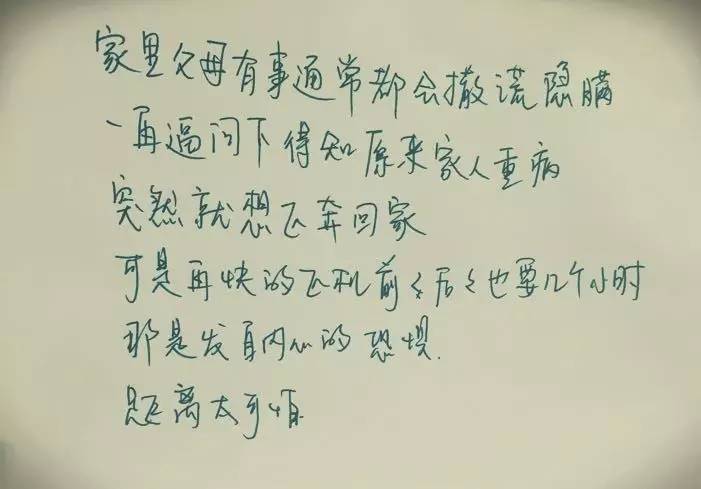 家里父母有事通常都会撒谎隐瞒
一再逼问下得知原来家人重病
突然就想飞奔回家
可是再快的飞机前々后々也要几个小时
那是发自内心的恐惧.
距离太可怕